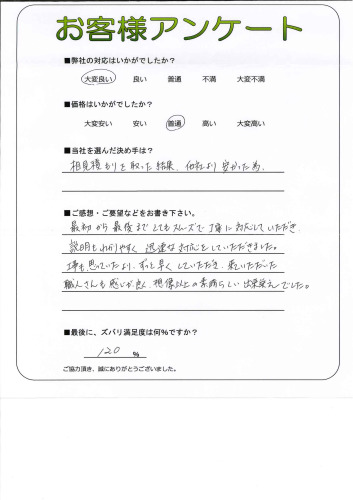 お客様アンケート
■弊社の対応はいかがでしたか？
大変良い 良い 普通 不満 大変不満
■価格はいかがでしたか？
大変安い 安い 普通 高い 大変高い
■当社を選んだ決め手は？
相見積もりを取った結果、他社より安かった為。
■ご感想・ご要望などをお書き下さい。
最初から最後までとてもスムーズで丁寧に対応していただき
説明もわかりやすく迅速な対応をしていただきました。
工事も思っていたより、ずっと早くしていただき、来ていただいた
職人さんも感じが良く、想像以上の素晴らしい出来栄えでした。
■最後に、ズバリ満足度は何％ですか？
120 ％
ご協力頂き、誠にありがとうございました。